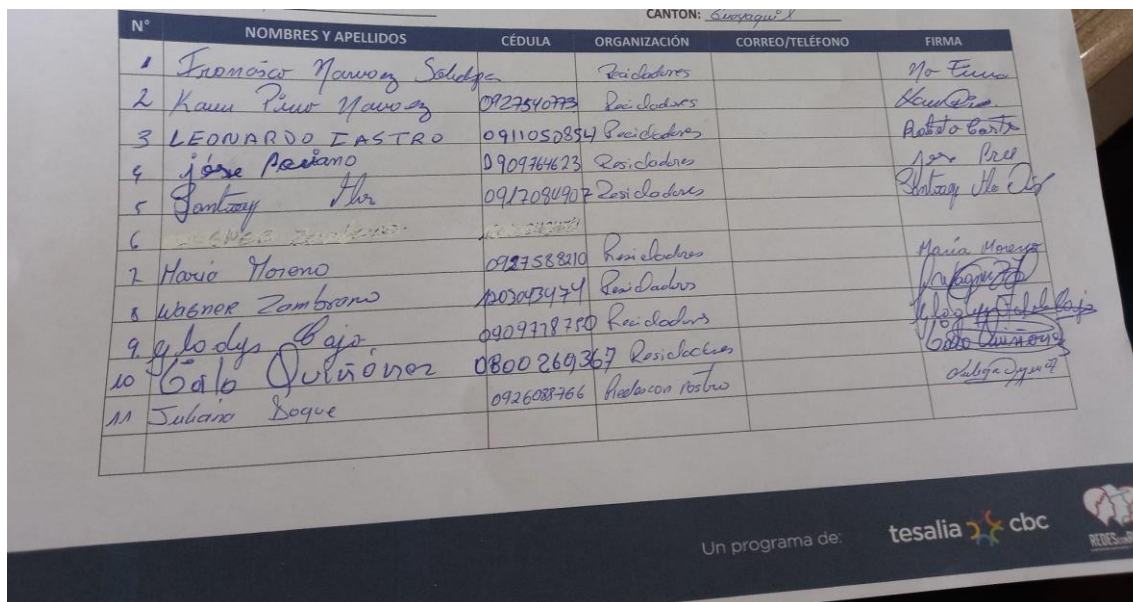 CANTON: Guayaquil
N° NOMBRES Y APELLIDOS CÉDULA ORGANIZACIÓN CORREO/TELÉFONO FIRMA
1 Francisco Narvaez Recicladores No Firma
2 Karen Pino Narvaez 0927540773 Recicladores
3 LEONARDO CASTRO 0911050854 Recicladores
4 jose 0909764623 Recicladores Jose
5 0917084907 Recicladores
6
7 Maria Moreno 0927588210 Recicladores Maria Moreno
8 WAGNER Zambrano 1203043474 Recicladores
9. gladys Cajo 0909778750 Recicladores
10 Galo Quiñónez 0800269367 Recicladores Galo Quiñonez
11 Juliana Boque 0926088766 Redes con rostro
Un programa de: tesalia cbc